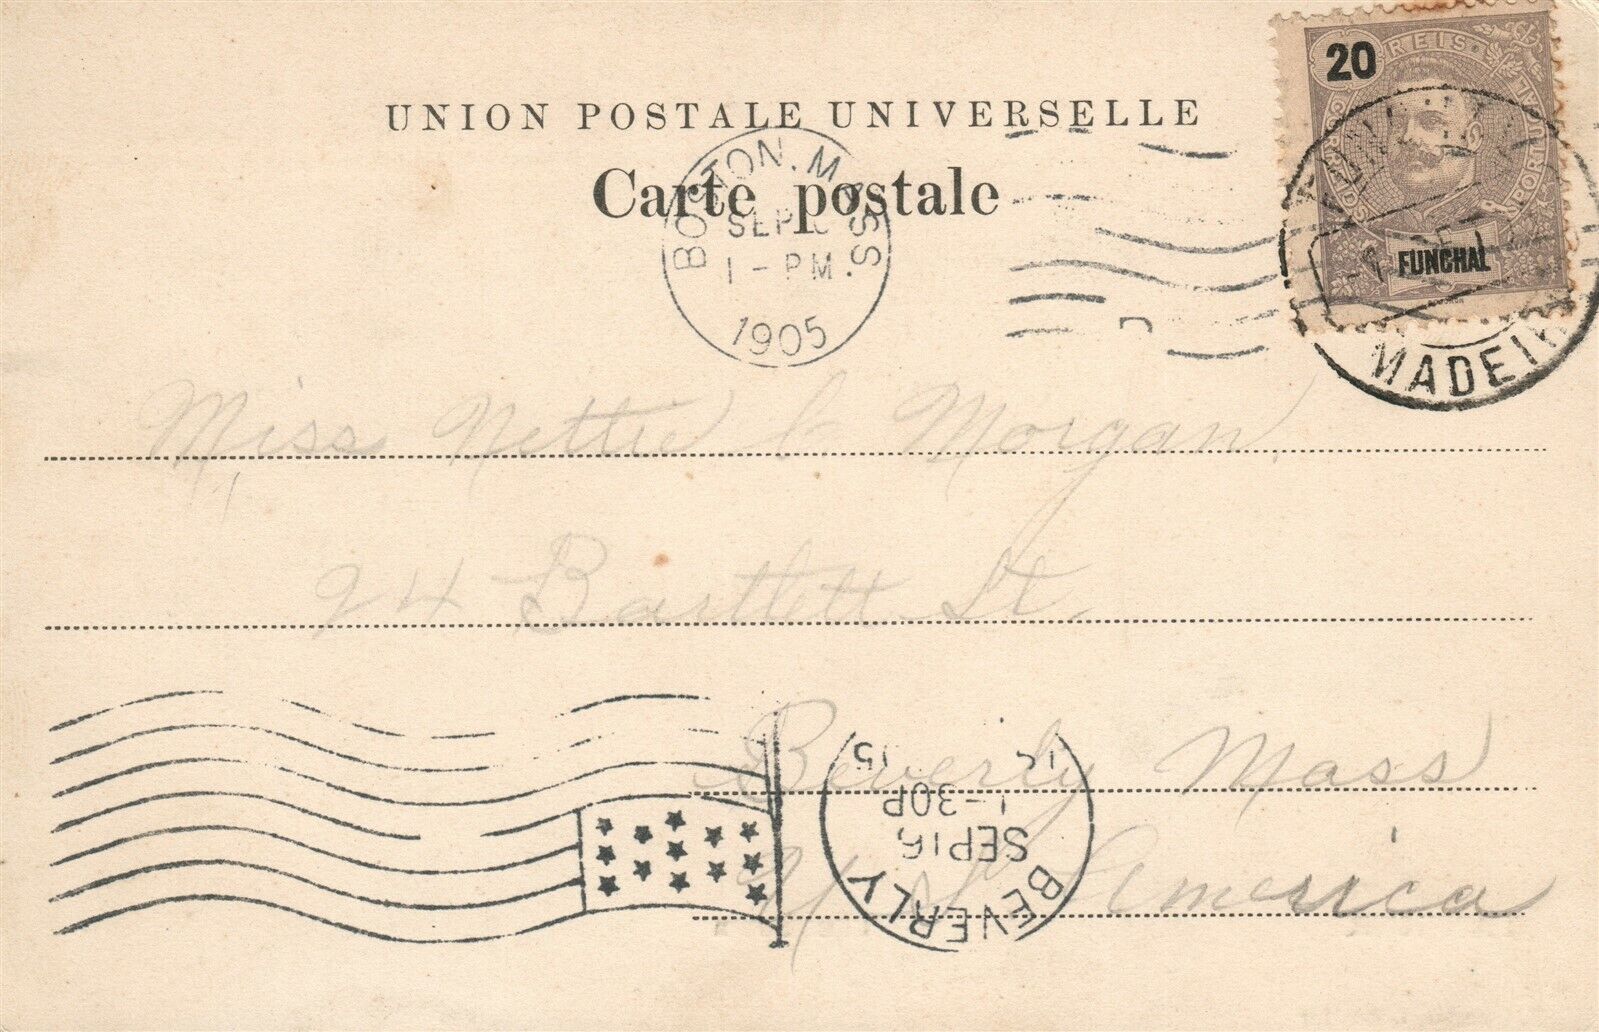 UNION POSTALE UNIVERSELLE
Carte postale
20
REIS
CORREIOS
PORTUGAL
FUNCHAL
MADEIRA
BOSTON. MASS
SEP
1-PM.
1905
Miss Nettie Morgan.
94 Bartlett St.
Beverly Mass
America
BEVERLY
SEP 16
1-30P